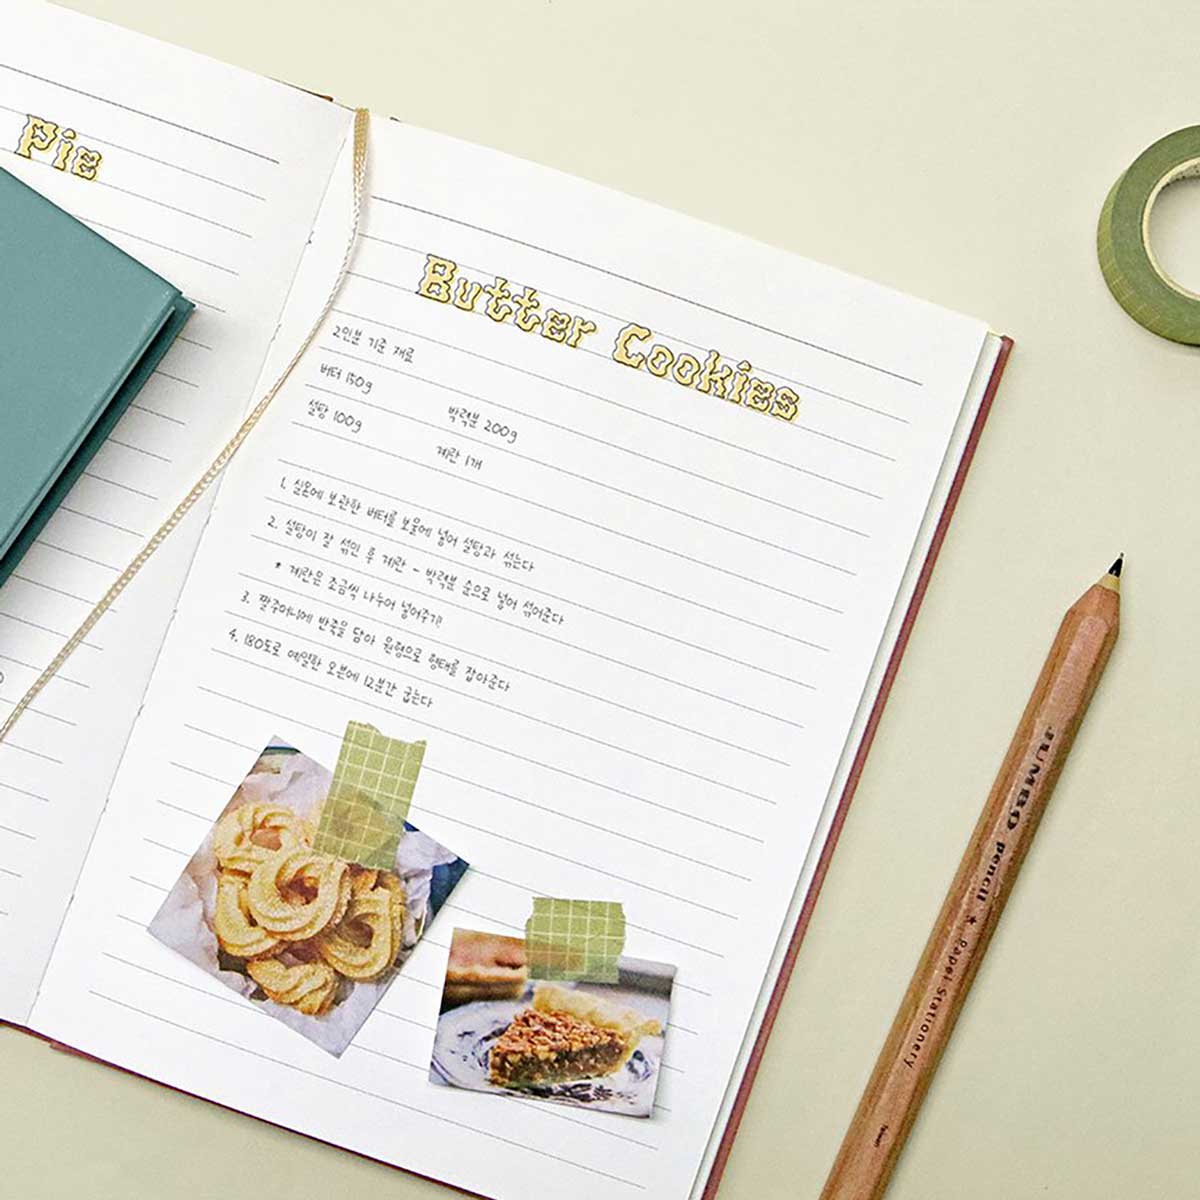 Pie
Butter Cookies
2인분 기준 재료
버터 150g
박력분 200g
설탕 100g
계란 1개
1. 실온에 보관한 버터를 보울에 넣어 설탕과 섞는다
2. 설탕이 잘 섞인 후 계란 - 박력분 순으로 넣어 섞어준다
* 계란은 조금씩 나누어 넣어주기!
3. 짤주머니에 반죽을 담아 원형으로 형태를 잡아준다
4. 180도로 예열한 오븐에 12분간 굽는다
JUMBO pencil ★ Papet Stationery
Taiwan